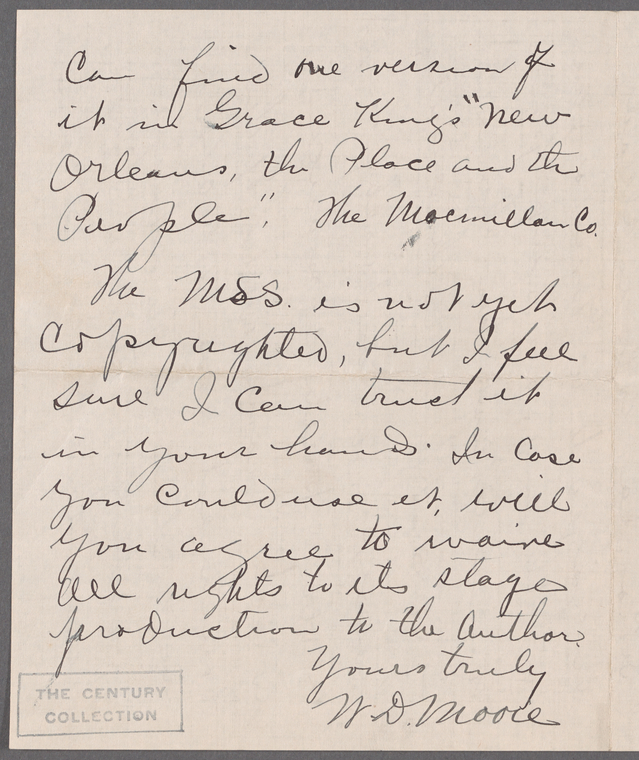 Can find one version of
it in Grace King's "New
Orleans, the Place and the
People". The Macmillan Co.
The MSS. is not yet
copyrighted, but I feel
sure I can trust it
in your hands. In case
you could use it, will
you agree to waive
all rights to its stage
production to the author.
Yours truly
W. D. Moore
THE CENTURY
COLLECTION